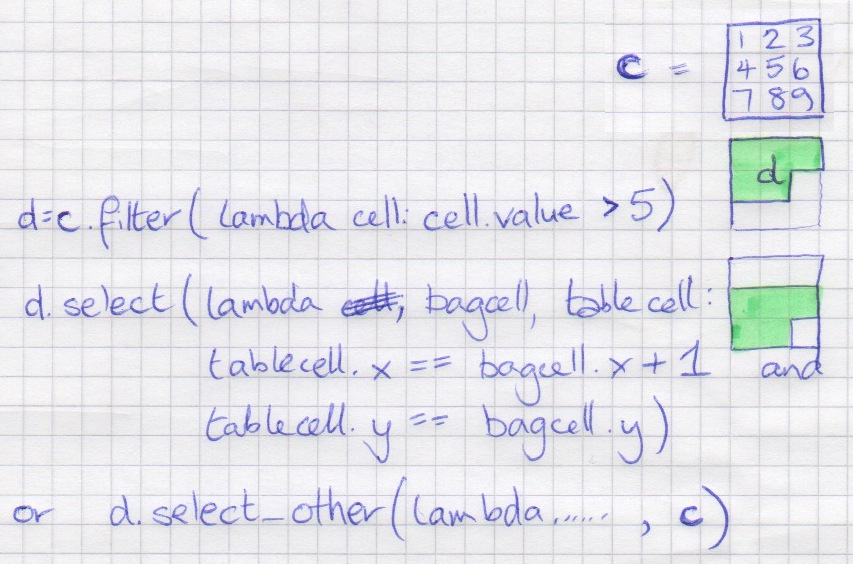 c = 1 2 3
4 5 6
7 8 9
d
d=c.filter( lambda cell: cell.value > 5)
d.select(lambda bagcell, table cell:
tablecell.x == bagcell.x + 1 and
tablecell.y == bagcell.y)
or d.select_other(lambda......, c)